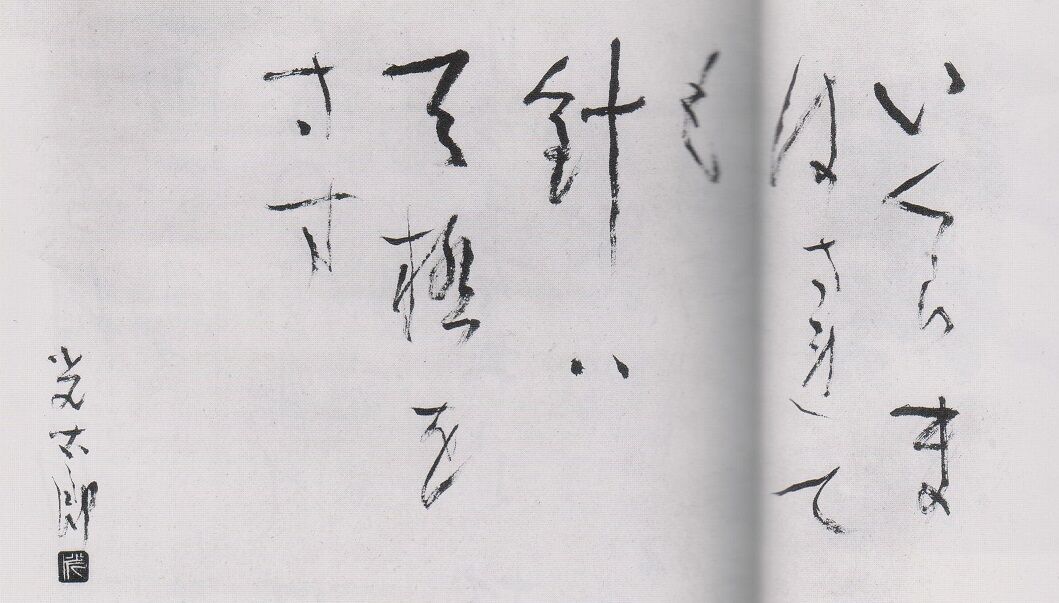 いくらま
はされて
も
針ハ
天極を
さす
光太郎